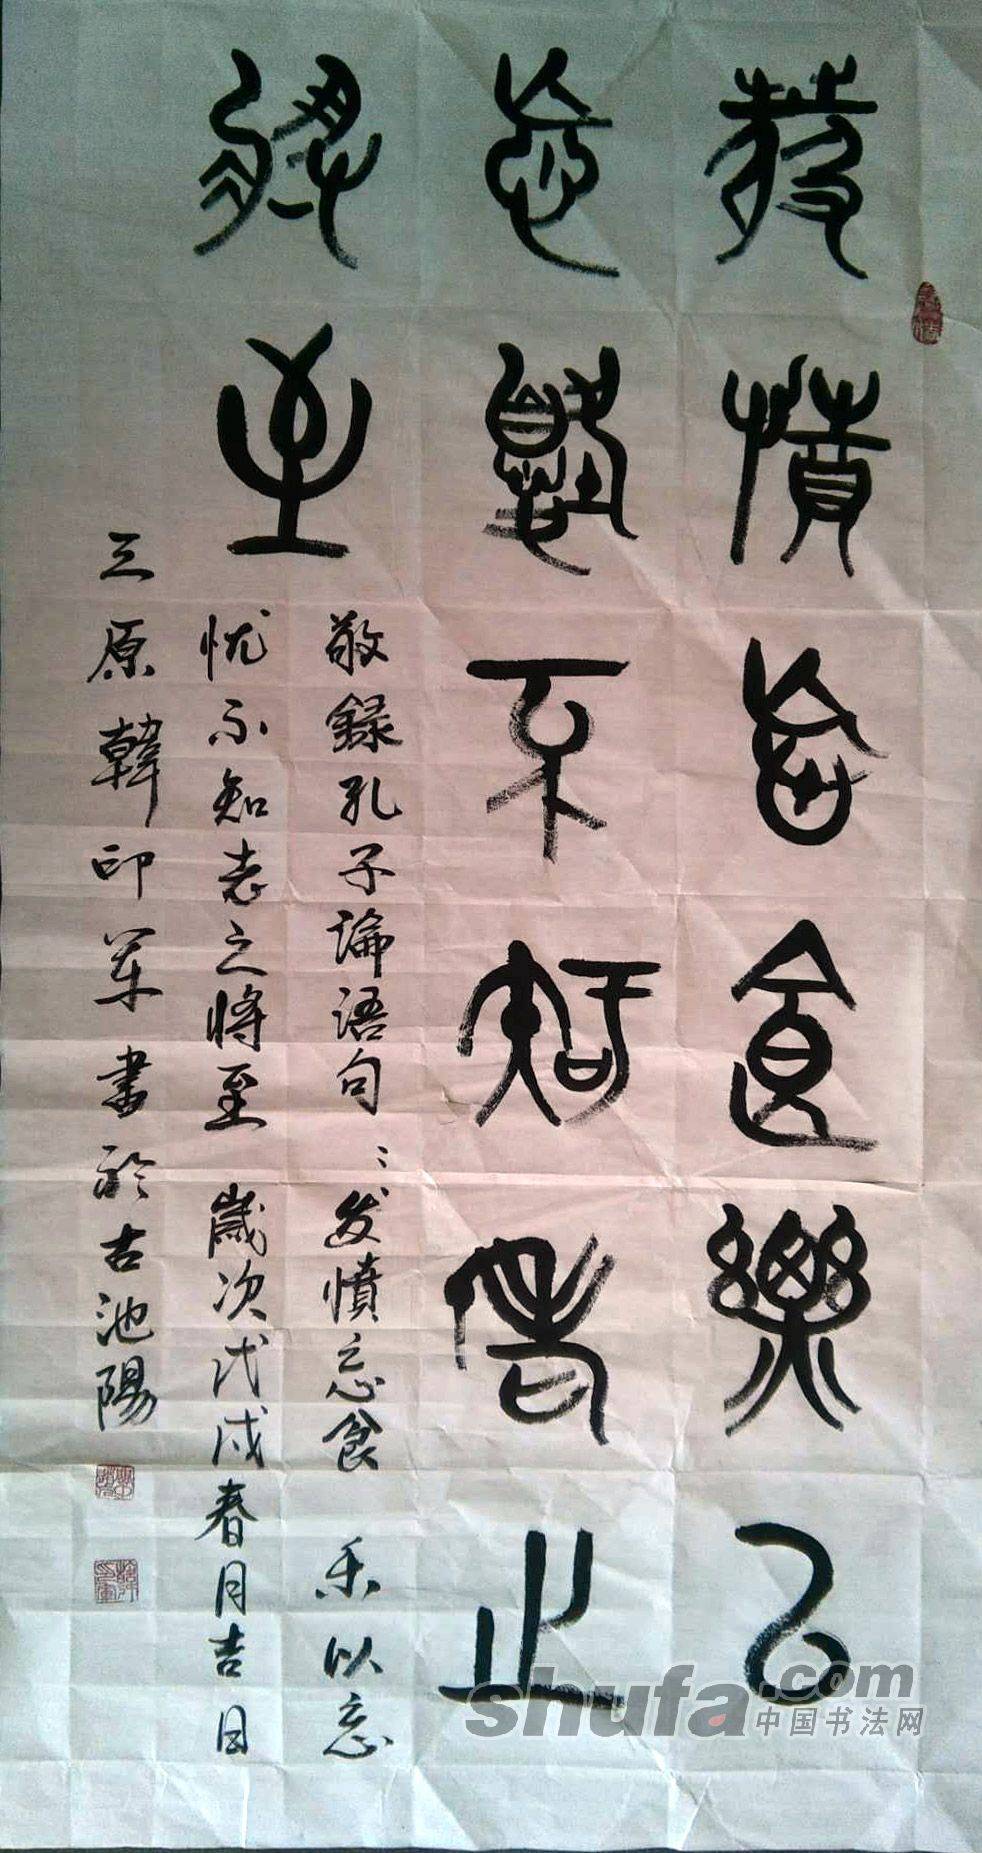 發憤忘食樂以
忘憂不知老之
將至
敬錄孔子論語句：发憤忘食 乐以忘
忧不知老之將至 歲次戊戌春月吉日
三原韓印军書於古池陽
shufa.com
中国书法网